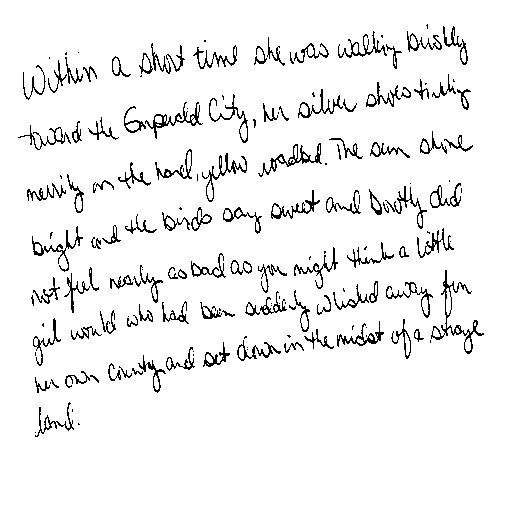 Within a short time she was walking briskly
toward the Emperald City, her silver shoes tinkling
merrily on the hard, yellow roadbed. The sun shone
bright and the birds sang sweet and Dorothy did
not feel nearly as bad as you might think a little
girl would who had been suddenly whisked away from
her own country and set down in the midst of a strange
land.